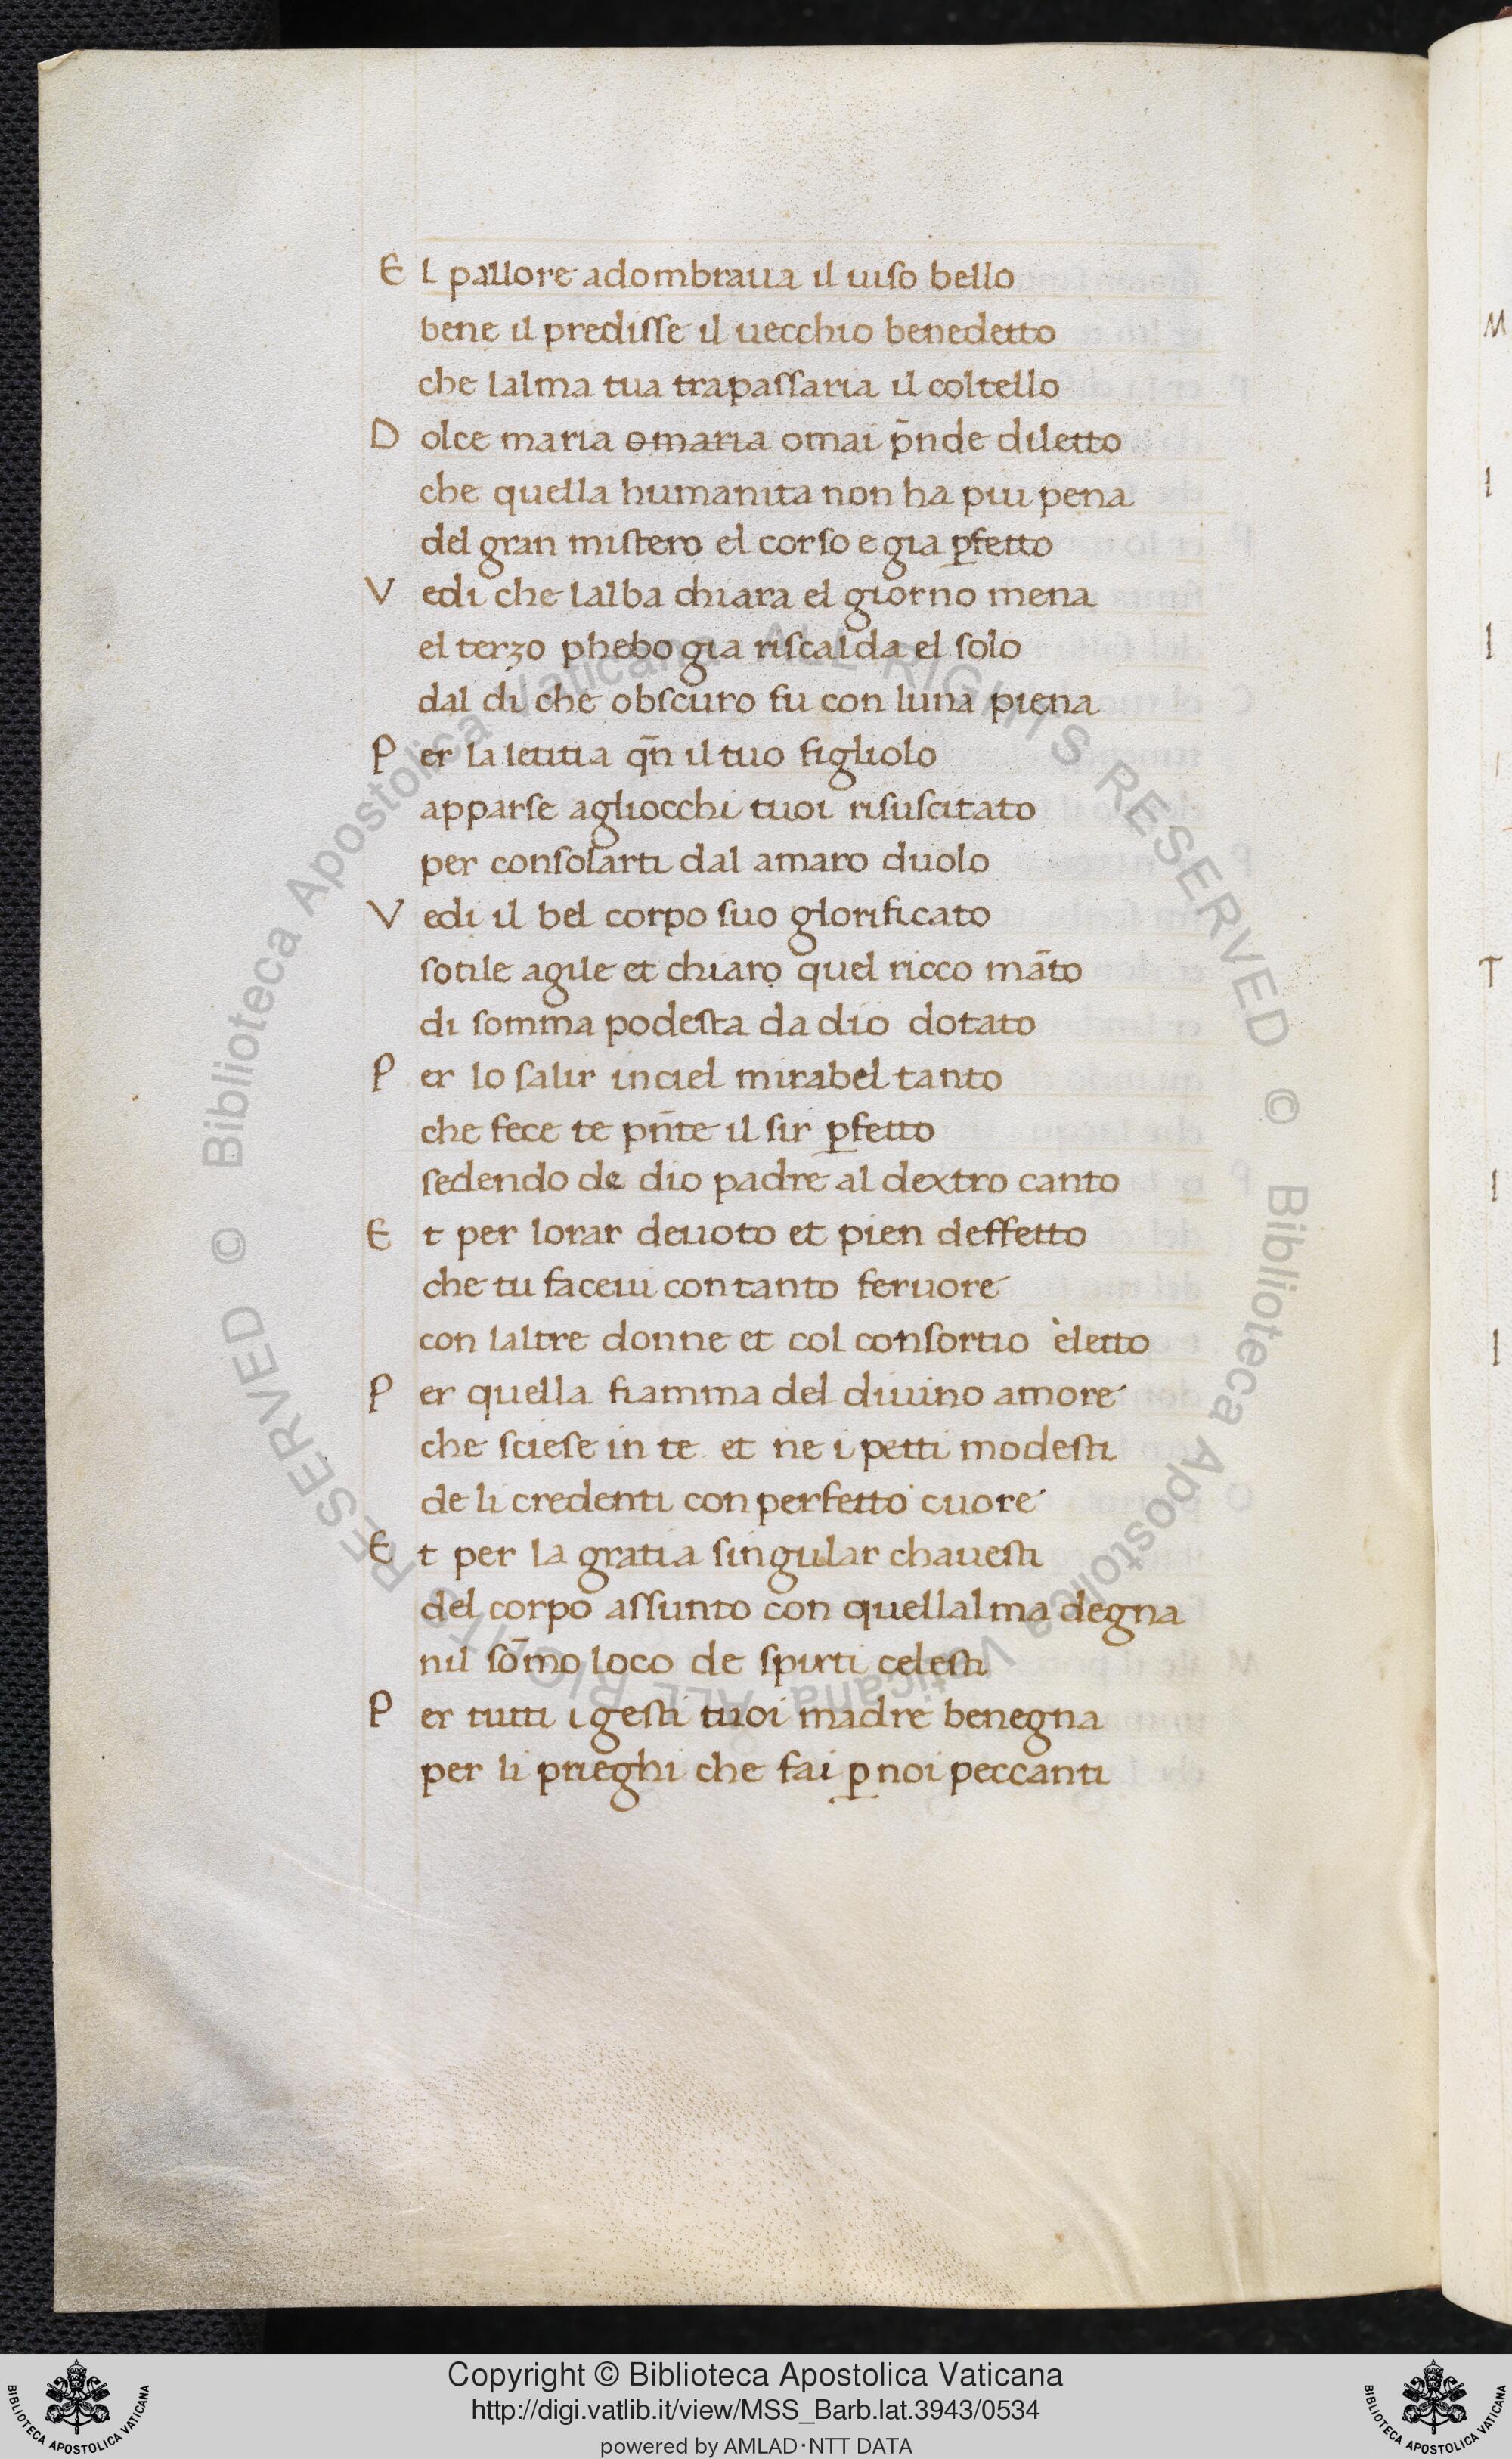 E l pallore adombraua il uiso bello
bene il predisse il uecchio benedetto
che lalma tua trapassaria il coltello
D olce maria omaria omai p̄nde diletto
che quella humanita non ha piu pena
del gran mistero el corso e gia ꝑfetto
V edi che lalba chiara el giorno mena
el terzo phebo gia riscalda el solo
dal di che obscuro fu con luna piena
P er la letitia qn̄ il tuo figliolo
apparse agliocchi tuoi risuscitato
per consolarti dal amaro duolo
V edi il bel corpo suo glorificato
sotile agile et chiaro quel ricco māto
di somma podesta da dio dotato
P er lo salir inciel mirabel tanto
che fece te pn̄te il sir ꝑfetto
sedendo de dio padre al dextro canto
E t per lorar deuoto et pien deffetto
che tu faceui con tanto feruore
con laltre donne et col consortio eletto
P er quella fiamma del diuino amore
che sciese in te et ne i petti modesti
de li credenti con perfetto cuore
E t per la gratia singular chauesti
del corpo assunto con quellalma degna
nil sōmo loco de spirti celesti
P er tutti i gesti tuoi madre benegna
per li prieghi che fai ꝑ noi peccanti
M
I
I
T
I
I
© Biblioteca Apostolica Vaticana ALL RIGHTS RESERVED © Biblioteca Apostolica Vaticana ALL RIGHTS RESERVED
Copyright © Biblioteca Apostolica Vaticana
http://digi.vatlib.it/view/MSS_Barb.lat.3943/0534
powered by AMLAD·NTT DATA
BIBLIOTECA APOSTOLICA VATICANA
BIBLIOTECA APOSTOLICA VATICANA